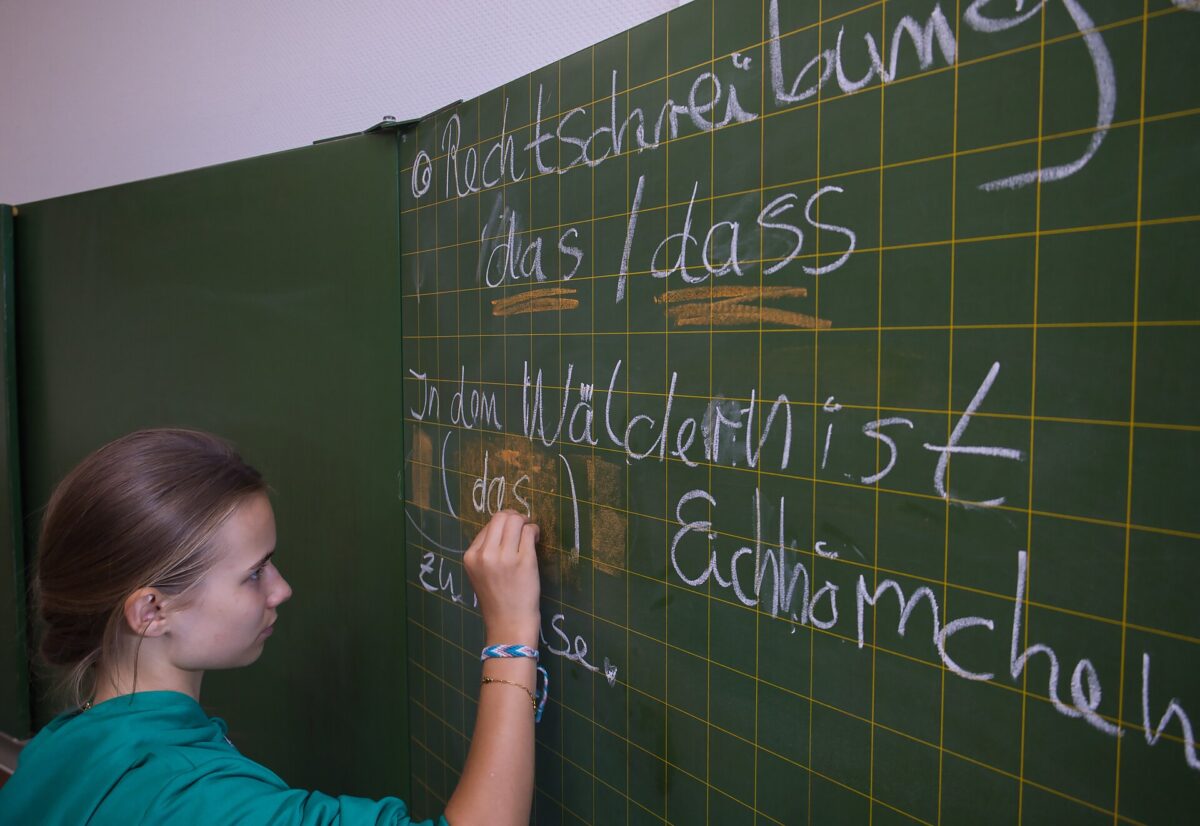 Rechtschreibung
das / dass
In den Wäldern ist
(das) Eichhörnchen
zu use.